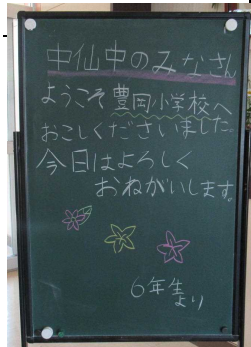 中仙中のみなさん
ようこそ豊岡小学校へ
おこしくださいました。
今日はよろしく
おねがいします。
6年生
より